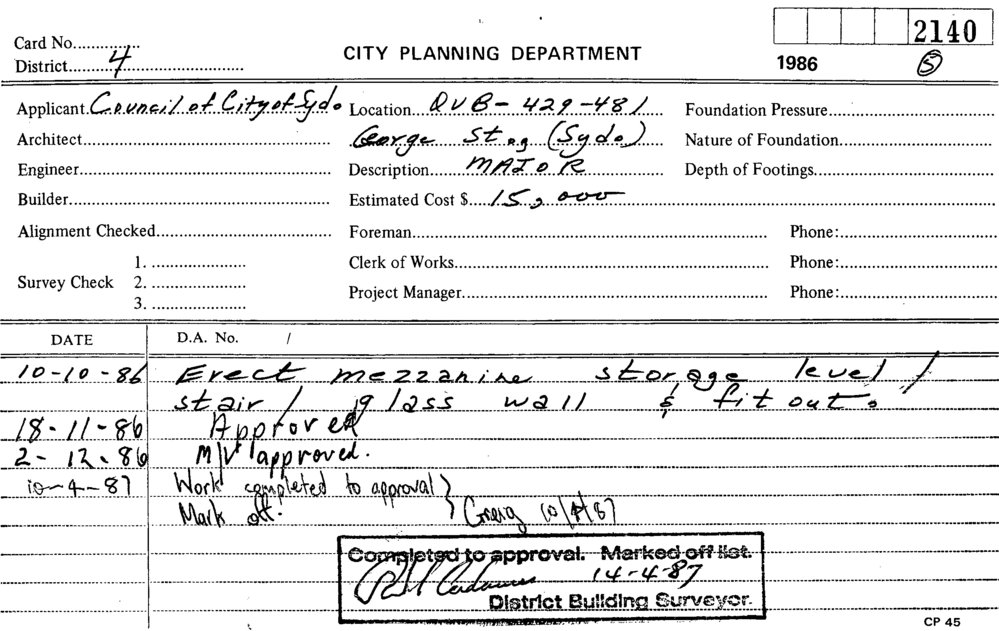 2140
Card No...............
District.........4
CITY PLANNING DEPARTMENT
1986
5
Applicant. Council of City of Syd.
Location.... QVB - 429-481
Foundation Pressure
Architect
George St., (Syd.)
Nature of Foundation
Engineer
Description MAJOR
Depth of Footings
Builder
Estimated Cost $ 15,000
Alignment Checked
Foreman
Phone:
Survey Check
1.
2.
3.
Clerk of Works
Phone:
Project Manager
Phone:
DATE
D.A. No. /
10-10-86 Erect mezzanine storage level /
stair / glass wall & fit out.
18-11-86 Approved
2-12-86 M/V approved.
10-4-87 Work completed to approval
Mark off. } 10/4/87
Completed to approval. Marked off list.
14-4-87
District Building Surveyor.
CP 45